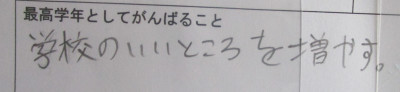 最高学年としてがんばること
学校のいいところを増やす。